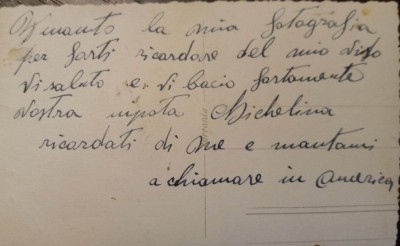 Vi manto la mia fotografia
per farti ricordare del mio viso
vi saluto e vi bacio fortamente
vostra nipota Michelina
ricordati di me e mantami
a chiamare in America